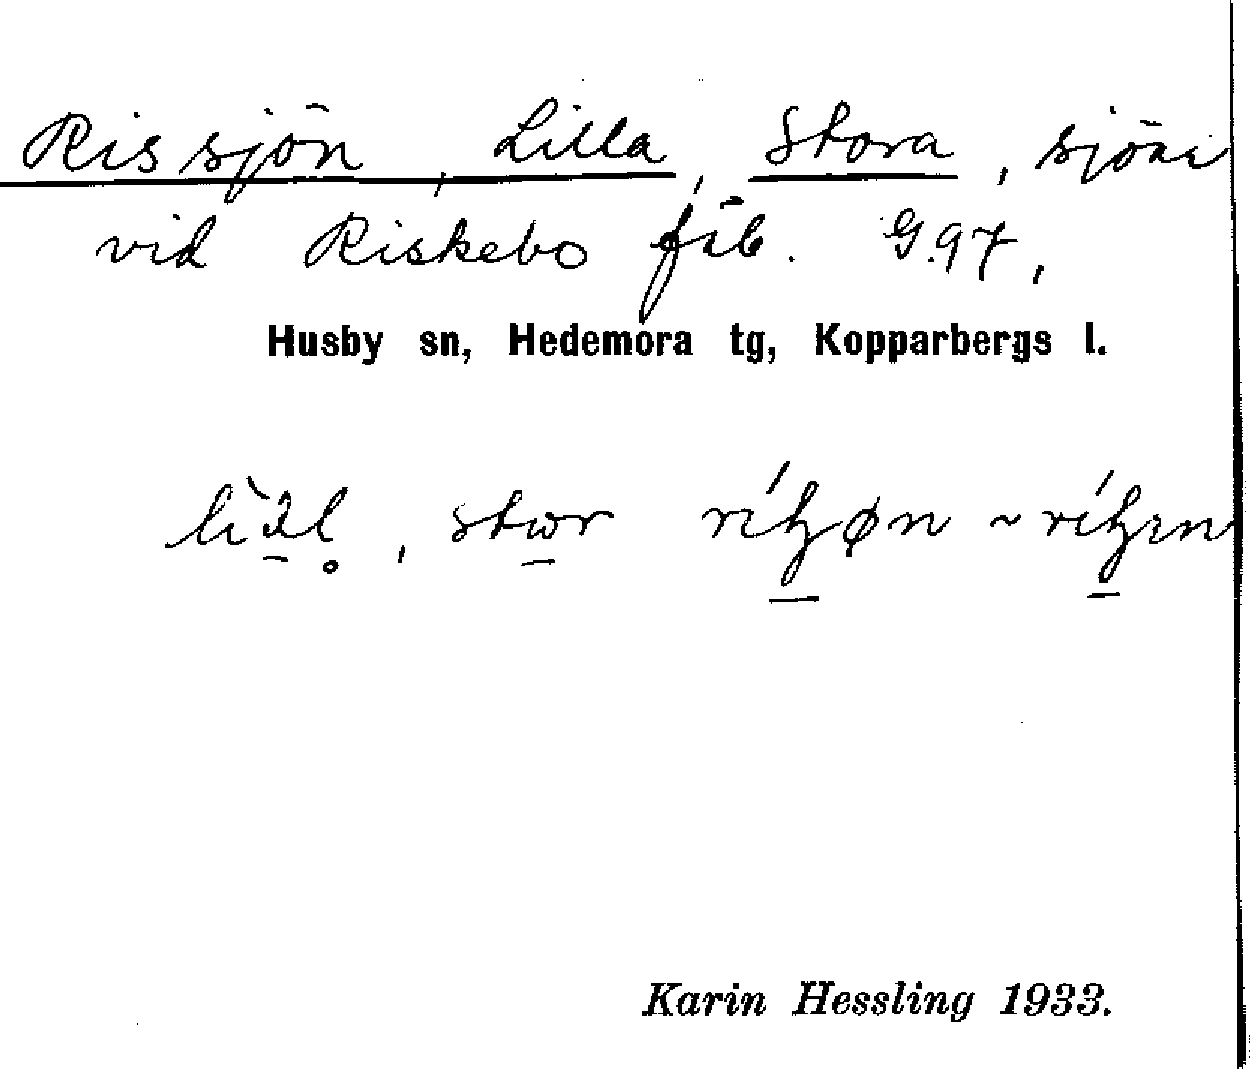 Rissjön, Lilla, Stora, sjöar
vid Riskebo fäb. G.97,
Husby sn, Hedemora tg, Kopparbergs l.
Karin Hessling 1933.